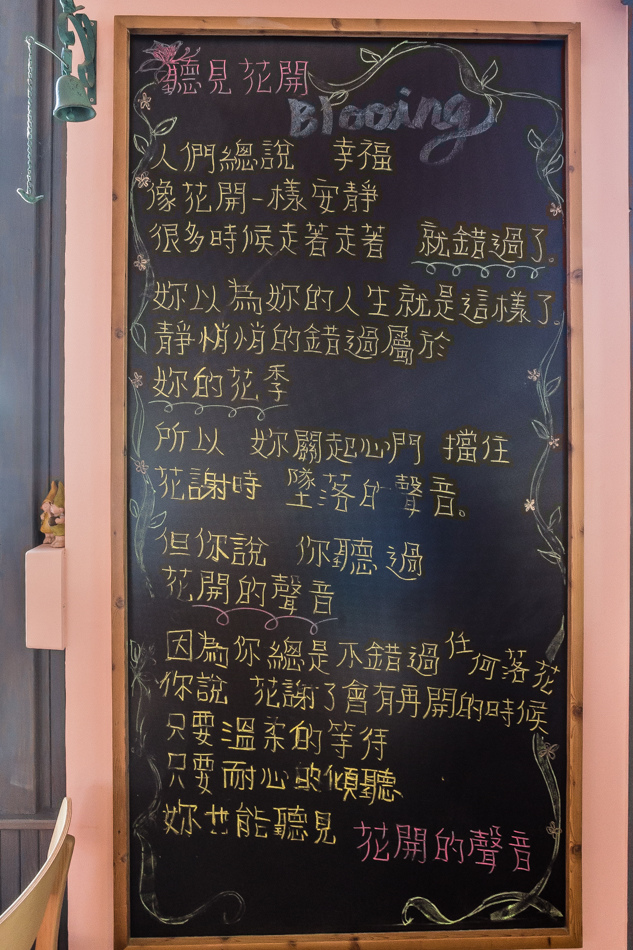 聽見花開
Blooing
人們總說　幸福
像花開一樣安靜
很多時候走著走著　就錯過了。
妳以為妳的人生就是這樣了。
靜悄悄的錯過屬於
妳的花季
所以　妳關起心門　擋住
花謝時　墜落的聲音。
但你說　你聽過
花開的聲音
因為你總是不錯過任何落花
你說　花謝了會有再開的時候
只要溫柔的等待
只要耐心的傾聽
妳也能聽見　花開的聲音